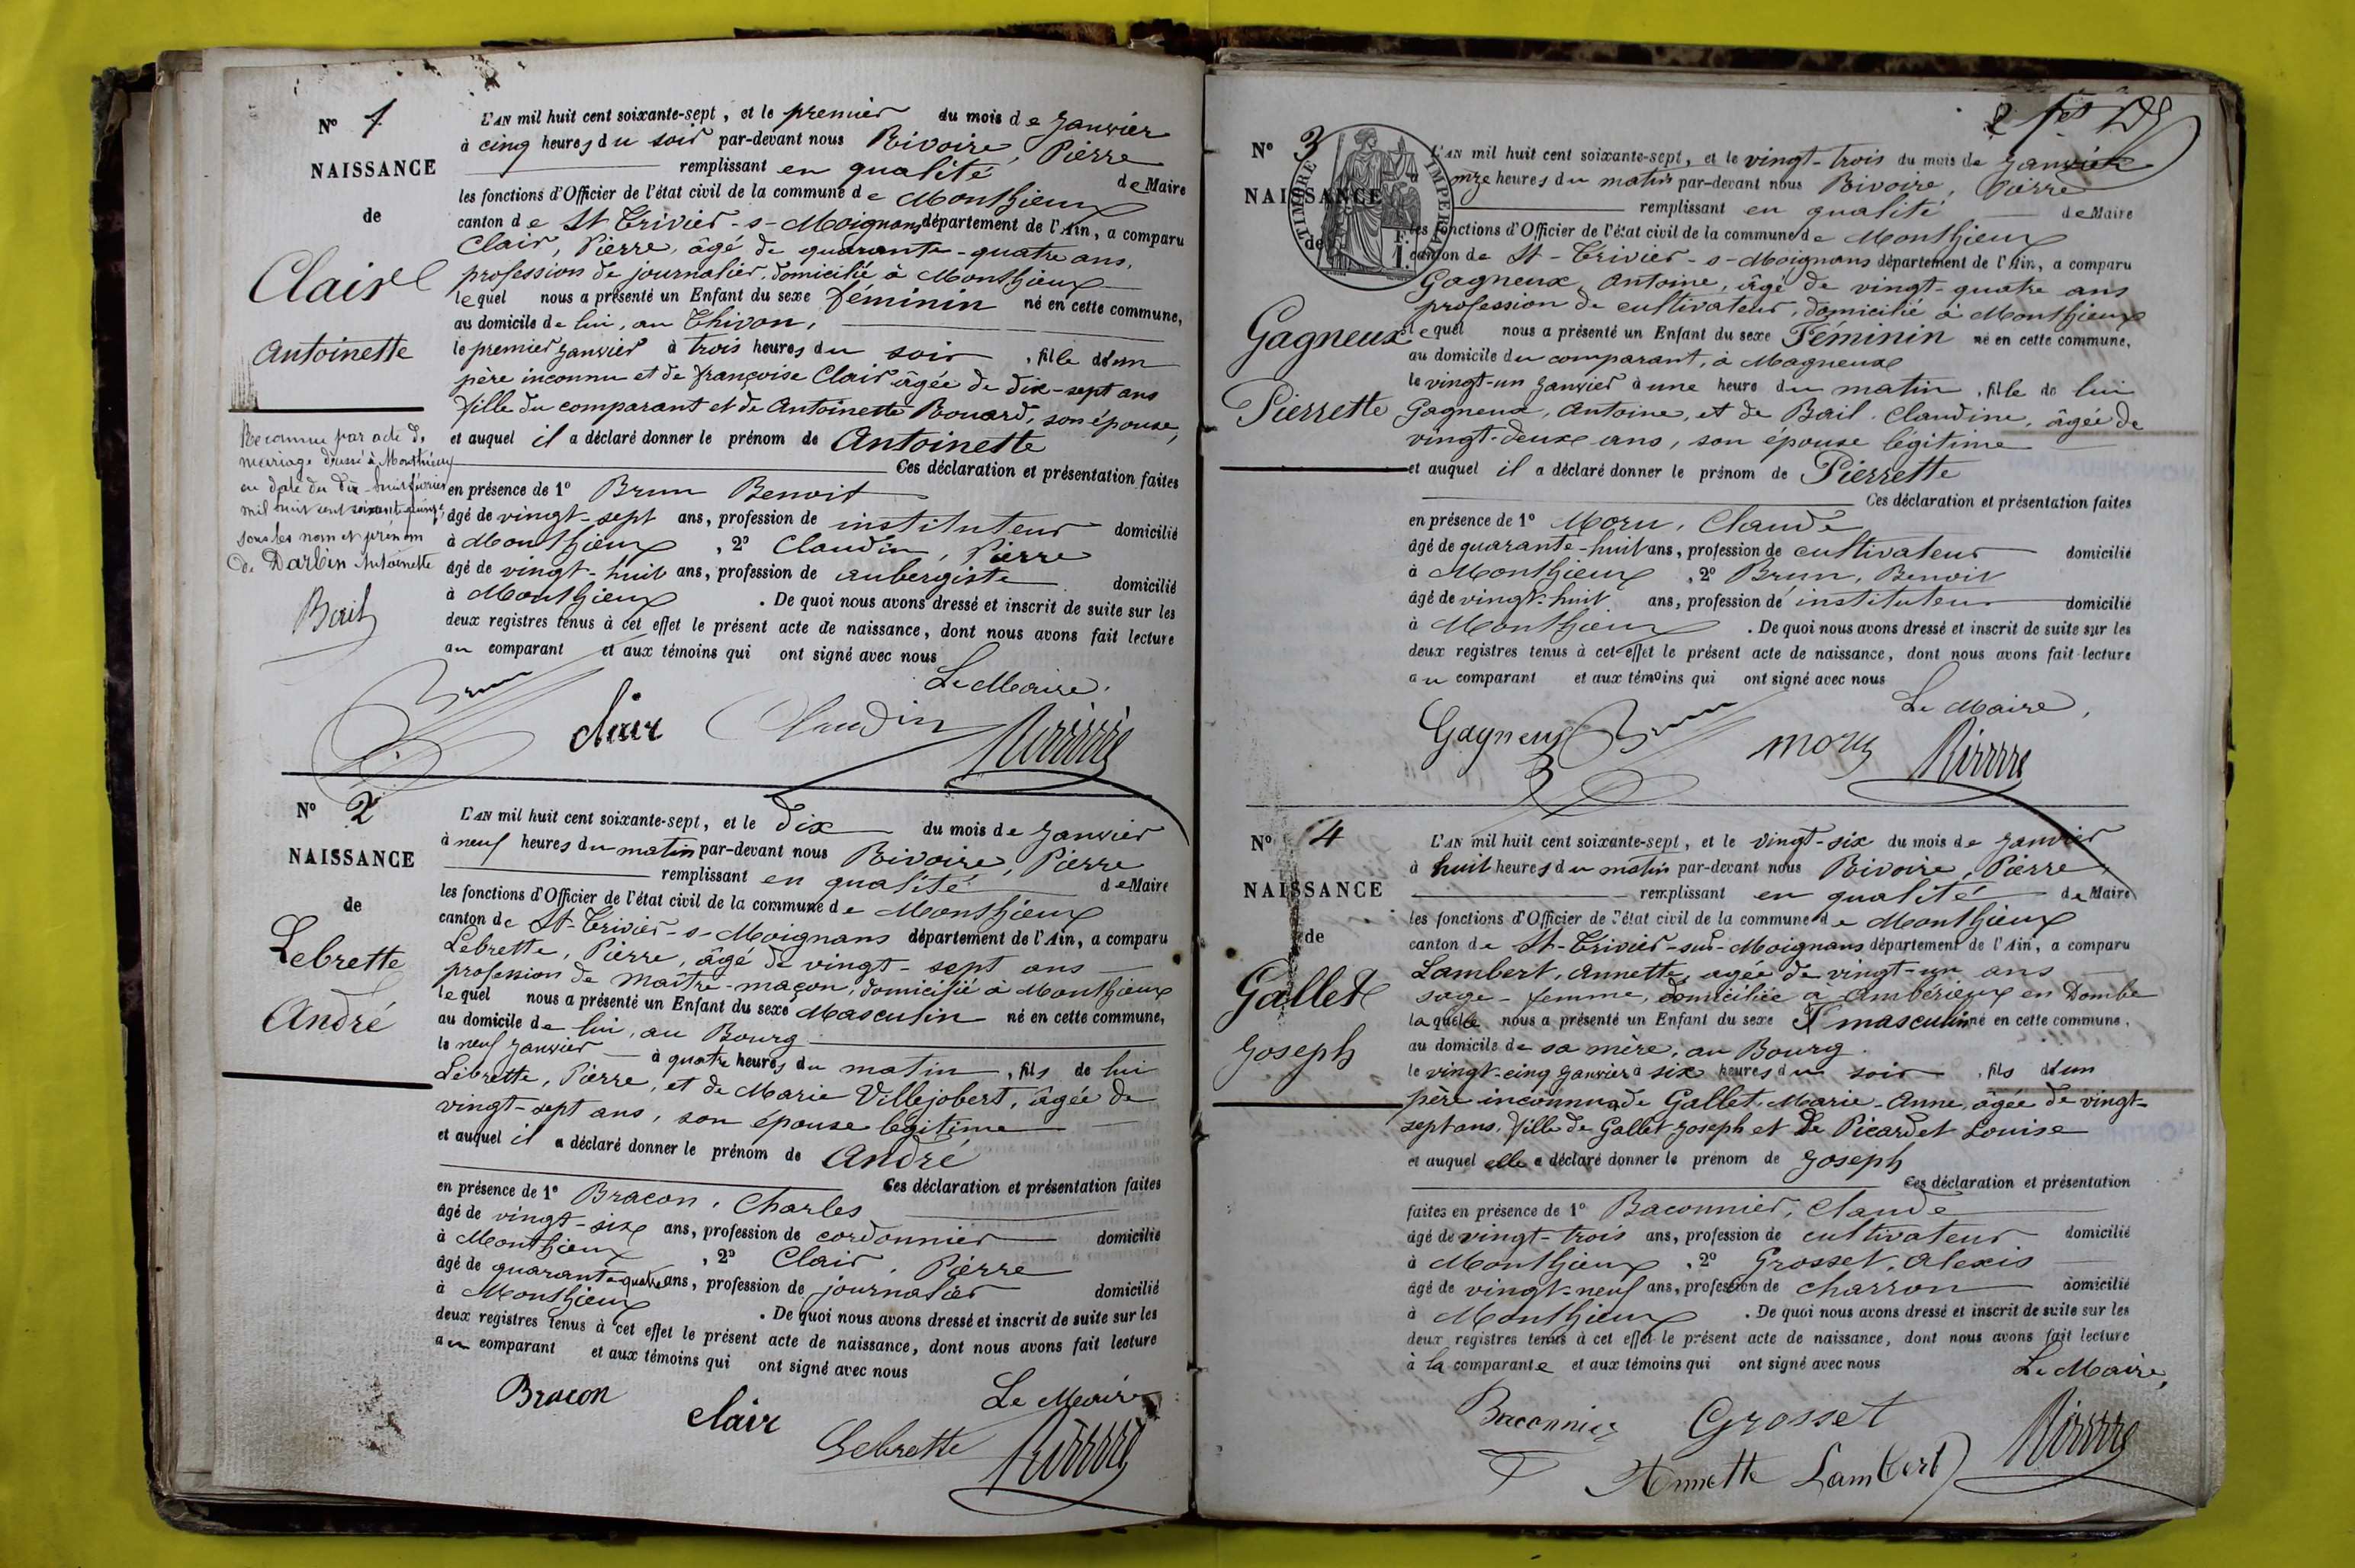 N° 1
NAISSANCE
de
Clair
Antoinette
Reconnue par acte de
mariage dressé à Monthieux
en date du dix-huit février
mil huit cent soixante quinze
sous les nom et prénom
de Darbin Antoinette
Bail
L'AN mil huit cent soixante-sept, et le premier du mois de Janvier
à cinq heures du soir par-devant nous Rivoire, Pierre
remplissant en qualité de Maire
les fonctions d'Officier de l'état civil de la commune de Monthieux
canton de St Trivier-s-Moignans département de l'Ain, a comparu
Clair, Pierre, âgé de quarante-quatre ans,
profession de journalier, domicilié à Monthieux
lequel nous a présenté un Enfant du sexe féminin né en cette commune,
au domicile de lui, au Thivon,
le premier Janvier à trois heures du soir, fille d'un
père inconnu et de françoise Clair âgée de dix-sept ans
fille du comparant et de Antoinette Rouard, son épouse,
et auquel il a déclaré donner le prénom de Antoinette
Ces déclaration et présentation faites
en présence de 1° Brun Benoit
âgé de vingt-sept ans, profession de instituteur domicilié
à Monthieux, 2° Claudin, Pierre
âgé de vingt-huit ans, profession de aubergiste domicilié
à Monthieux. De quoi nous avons dressé et inscrit de suite sur les
deux registres tenus à cet effet le présent acte de naissance, dont nous avons fait lecture
au comparant et aux témoins qui ont signé avec nous
Le Maire,
Brun clair Claudin Rivoire
N° 2
NAISSANCE
de
Lebrette
André
L'AN mil huit cent soixante-sept, et le dix du mois de Janvier
à neuf heures du matin par-devant nous Rivoire, Pierre
remplissant en qualité de Maire
les fonctions d'Officier de l'état civil de la commune de Monthieux
canton de St-Trivier-s-Moignans département de l'Ain, a comparu
Lebrette, Pierre, âgé de vingt-sept ans
profession de Maître-maçon, domicilié à Monthieux
lequel nous a présenté un Enfant du sexe Masculin né en cette commune,
au domicile de lui, au Bourg
le neuf Janvier à quatre heures du matin, fils de lui
Lebrette, Pierre, et de Marie Villejobert, âgée de
vingt-sept ans, son épouse légitime
et auquel il a déclaré donner le prénom de André
Ces déclaration et présentation faites
en présence de 1° Bracon, Charles
âgé de vingt-six ans, profession de cordonnier domicilié
à Monthieux, 2° Clair, Pierre
âgé de quarante quatre ans, profession de journalier domicilié
à Monthieux. De quoi nous avons dressé et inscrit de suite sur les
deux registres tenus à cet effet le présent acte de naissance, dont nous avons fait lecture
au comparant et aux témoins qui ont signé avec nous
Le Maire
Bracon clair Lebrette Rivoire
N° 3
NAISSANCE
de
TIMBRE IMPÉRIAL
Gagneux
Pierrette
L'AN mil huit cent soixante-sept, et le vingt-trois du mois de Janvier
à onze heures du matin par-devant nous Rivoire, Pierre
remplissant en qualité de Maire
les fonctions d'Officier de l'état civil de la commune de Monthieux
canton de St-Trivier-s-Moignans département de l'Ain, a comparu
Gagneux, Antoine, âgé de vingt-quatre ans
profession de cultivateur, domicilié à Monthieux
lequel nous a présenté un Enfant du sexe Féminin né en cette commune,
au domicile du comparant, à Magneux
le vingt-un Janvier à une heure du matin, fille de lui
Gagneux, Antoine, et de Bail Claudine, âgée de
vingt-deux ans, son épouse légitime
et auquel il a déclaré donner le prénom de Pierrette
Ces déclaration et présentation faites
en présence de 1° Moru, Claude
âgé de quarante-huit ans, profession de cultivateur domicilié
à Monthieux, 2° Brun, Benoit
âgé de vingt-huit ans, profession de instituteur domicilié
à Monthieux. De quoi nous avons dressé et inscrit de suite sur les
deux registres tenus à cet effet le présent acte de naissance, dont nous avons fait lecture
au comparant et aux témoins qui ont signé avec nous
Le Maire,
Gagneux Brun moru Rivoire
N° 4
NAISSANCE
de
Gallet
Joseph
L'AN mil huit cent soixante-sept, et le vingt-six du mois de Janvier
à huit heures du matin par-devant nous Rivoire, Pierre,
remplissant en qualité de Maire
les fonctions d'Officier de l'état civil de la commune de Monthieux
canton de St-Trivier-sur-Moignans département de l'Ain, a comparu
Lambert, Annette, agée de vingt-un ans
sage-femme, domiciliée à Ambérieux en Dombe
laquelle nous a présenté un Enfant du sexe masculin né en cette commune,
au domicile de sa mère, au Bourg
le vingt-cinq Janvier à six heures du soir, fils d'un
père inconnu & de Gallet, Marie-Anne, âgée de vingt-
sept ans, fille de Gallet Joseph et de Picardet Louise
et auquel elle a déclaré donner le prénom de Joseph
Ces déclaration et présentation
faites en présence de 1° Baconnier, Claude
âgé de vingt-trois ans, profession de cultivateur domicilié
à Monthieux, 2° Grosset, Alexis
âgé de vingt-neuf ans, profession de charron domicilié
à Monthieux. De quoi nous avons dressé et inscrit de suite sur les
deux registres tenus à cet effet le présent acte de naissance, dont nous avons fait lecture
à la comparante et aux témoins qui ont signé avec nous
Le Maire,
Baconnier Grosset Rivoire
Annette Lambert